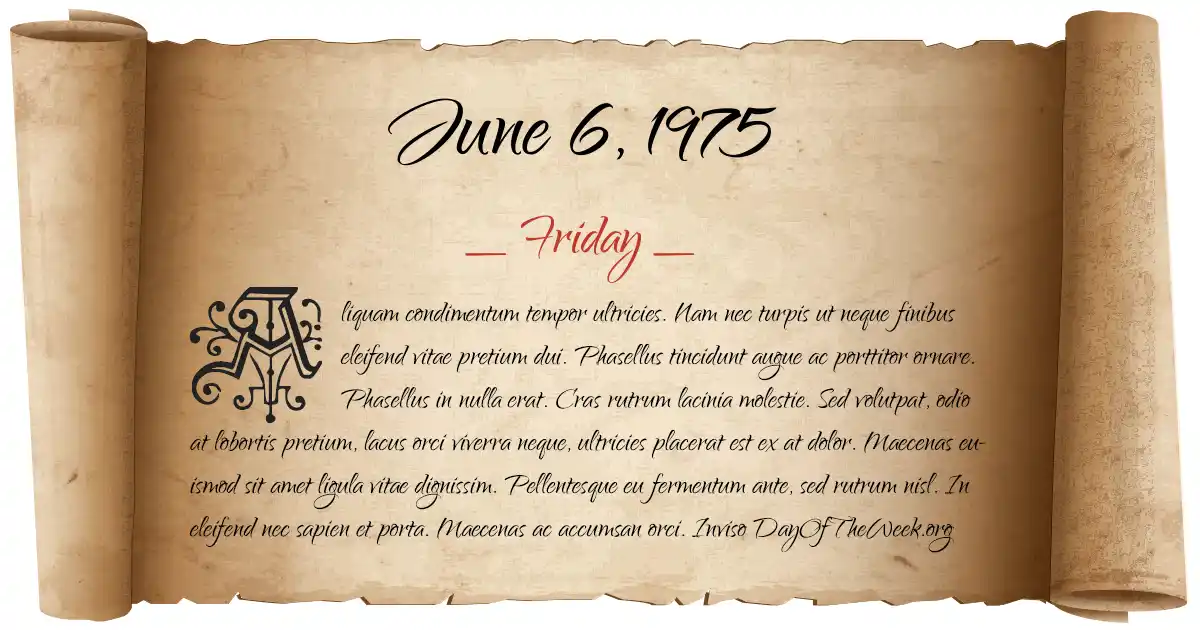 June 6, 1975
_ Friday _
Aliquam condimentum tempor ultricies. Nam nec turpis ut neque finibus
eleifend vitae pretium dui. Phasellus tincidunt augue ac porttitor ornare.
Phasellus in nulla erat. Cras rutrum lacinia molestie. Sed volutpat, odio
at lobortis pretium, lacus orci viverra neque, ultricies placerat est ex at dolor. Maecenas eu-
ismod sit amet ligula vitae dignissim. Pellentesque eu fermentum ante, sed rutrum nisl. In
eleifend nec sapien et porta. Maecenas ac accumsan orci. Inviso DayOfTheWeek.org